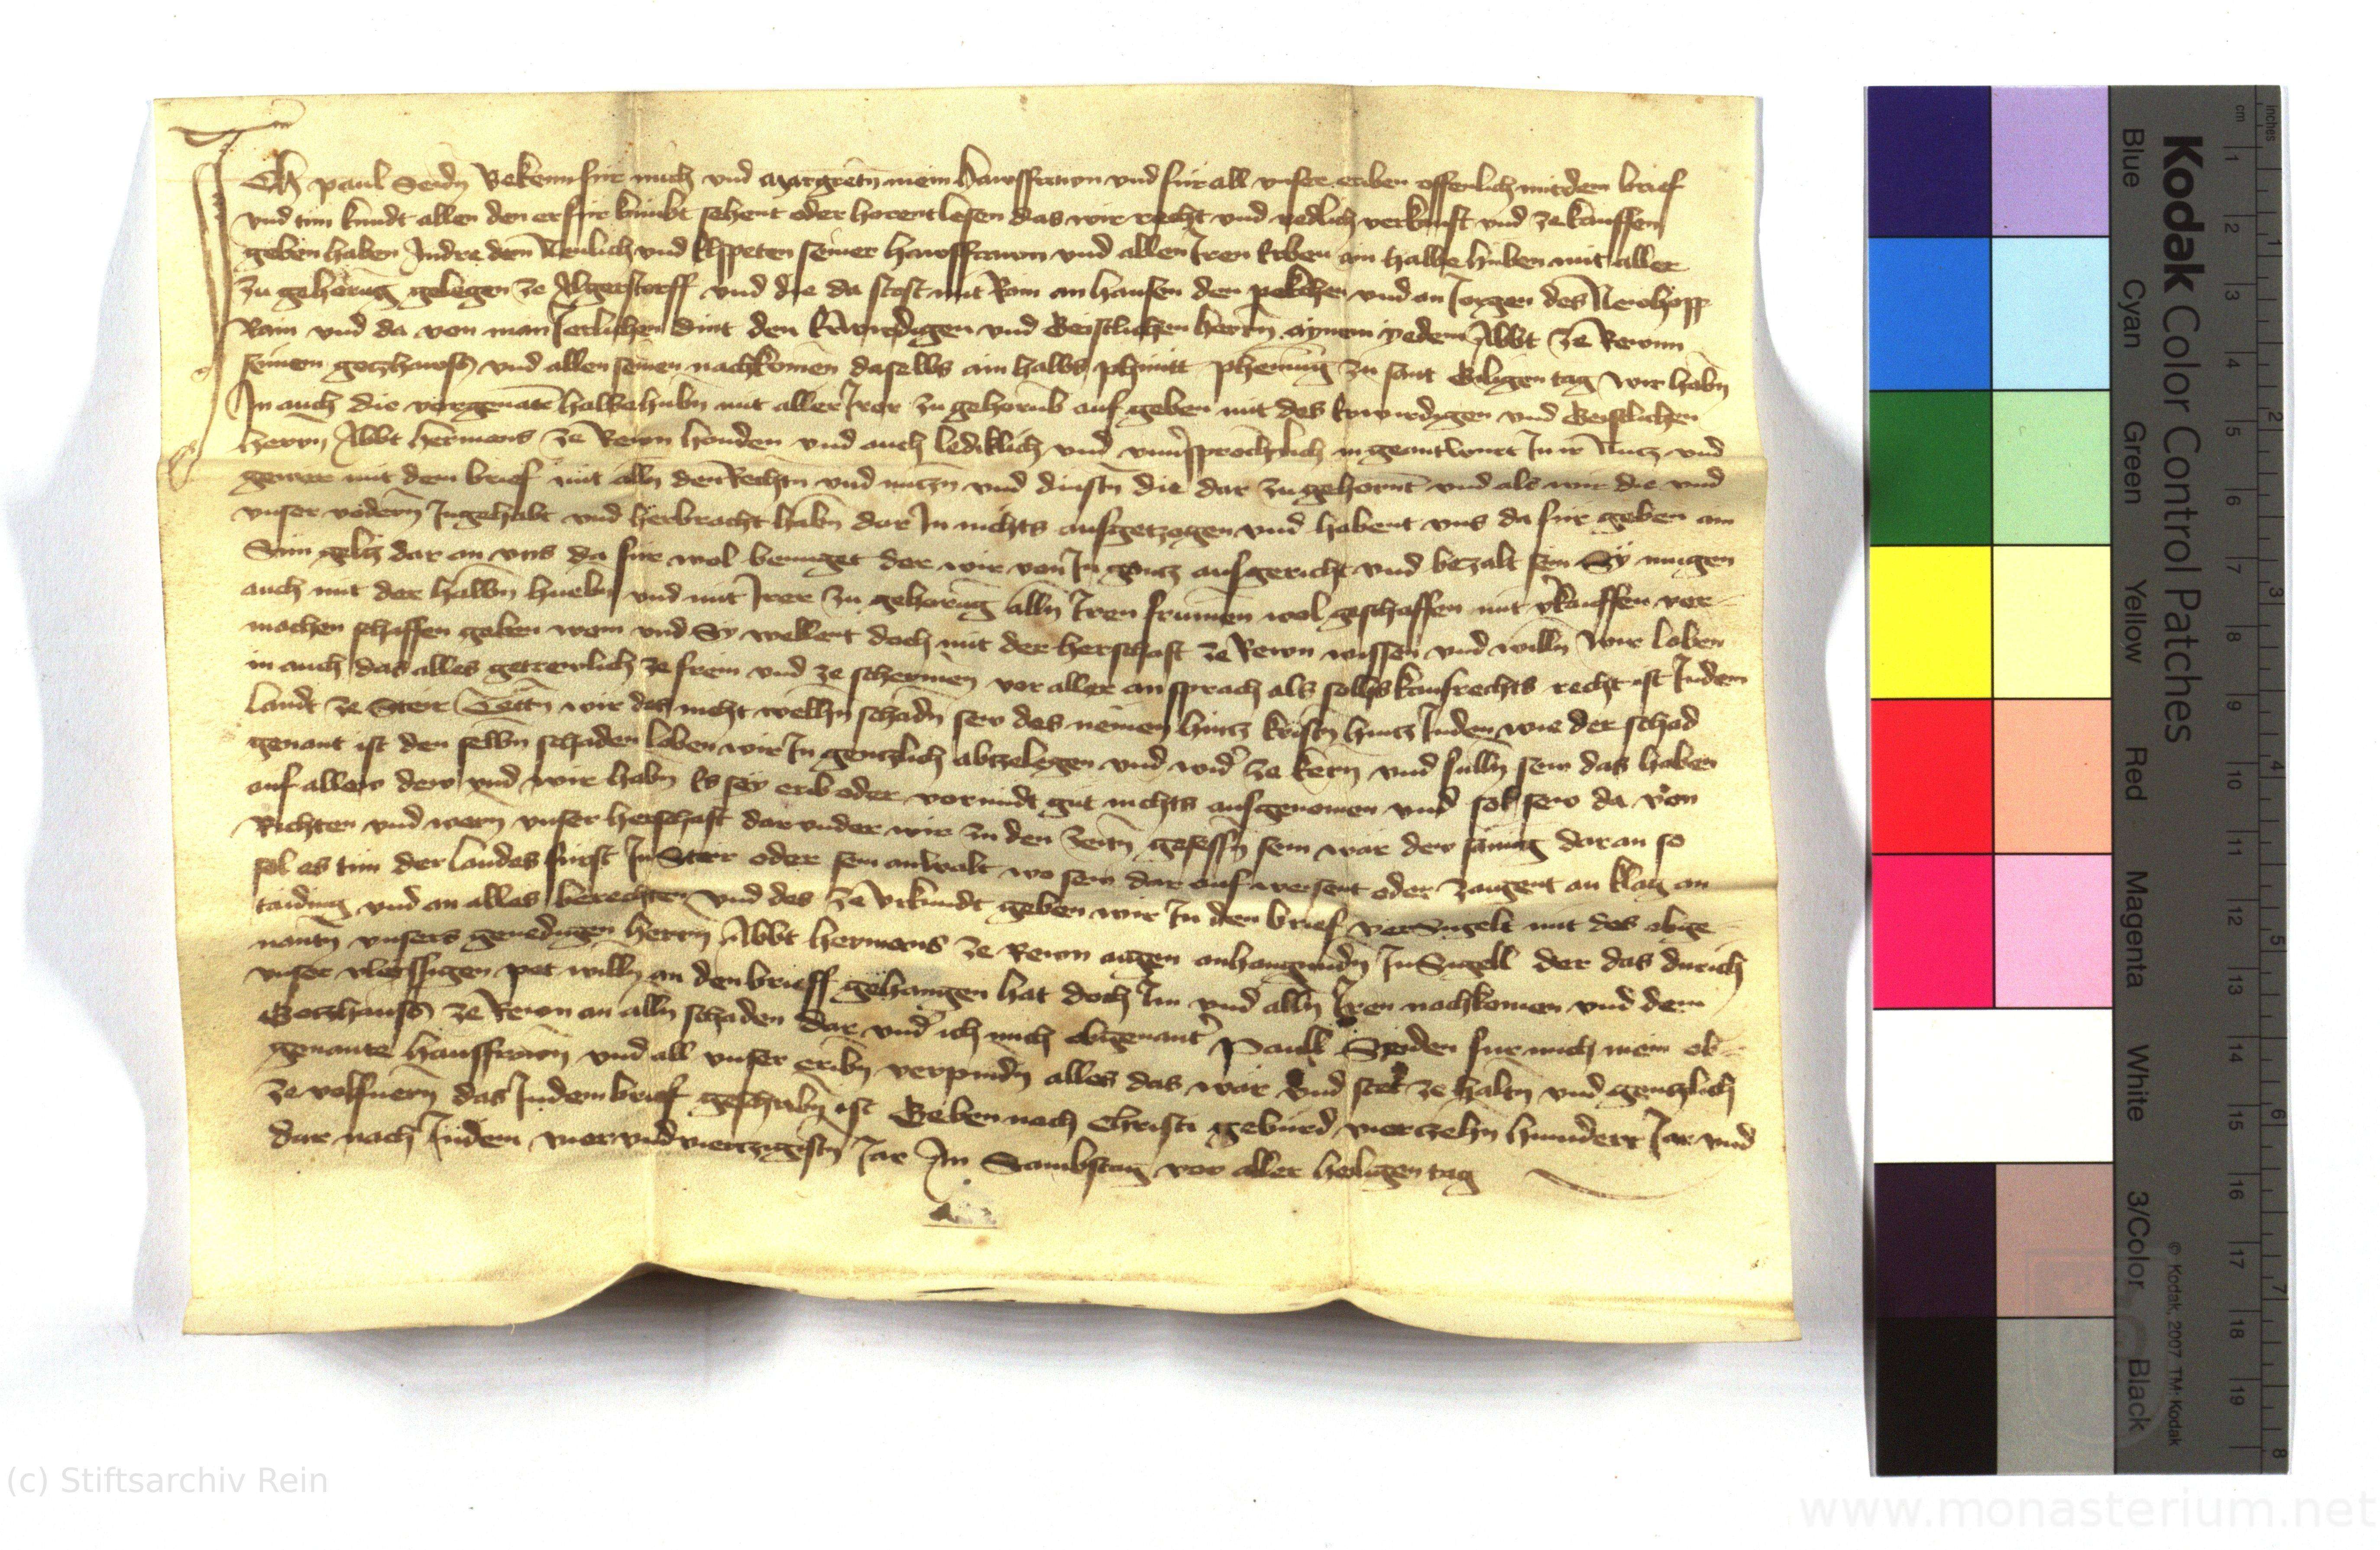 Ich paul Seidn Bekenn für mich vnd Margretn mein Hawsffrawn vnd für all vnser eriben offenlich mit dem brief
vnd tun kundt allen den er für kumbt sehent oder horent lesen das wir recht vnd redlich verkauft vnd ze kauffen
geben haben Andre dem Newlich vnd Elspeten seiner hawsffrawn vnd allen Iren Erben ain halbe huben mit aller
zu gehorung gelegen ze Algerstorff vnd die da stost mit Rain an hansen den pekchen vnd an Jorgen des
Rain vnd da von man Jerlichen dint den Erwirdigen vnd Geistlichen herrn aynem yedem Abbt ze Rewnn
seinem gotzhaws vnd allen seinen nachkomen daselbs ain halbs phuntt phening zu sant Giligen tag wir habn
In auch die vorgenante halbe hubn mit aller Irer zu gehorung auf geben mit des Erwirdigen vnd Geistlichen
herrn Abbt hermans ze Rewn handen vnd auch lediklich vnd vnversprochenlich in geantwurt In ir Nutz vnd
gewer mit dem brief mit alln den Rechtn vnd nutzn vnd dinstn die dar zu gehorent vnd als wir die vnd
vnser vodern Ingehabt vnd herbracht habn dar In nichts ausgetzogen vnd habent vns da für geben ain
Sum geltz dar an vns da für wol benuget der wir von In gantz ausgericht vnd bezalt sein Sy mugen
auch mit der halbn huebn vnd mit Irer zu gehorung alln Iren frumen wol geschaffen mit verkauffen ver-
machen schaffen geben wem vnd Sy wellent doch mit der herschaft ze Rewn wissen vnd willn Wir loben
in auch das alles getrewlich ze frein vnd ze schermen vor aller an sprach als solhs kaufrechts recht ist In dem
Landt ze Steir Tettn wir des nicht welhn schadn sew des nemen hintz kristn hintz Juden wie der schad
genant ist den selbn schaden loben wir In gentzlich abtzelegen vnd wider ze kern vnd sulln sew das haben
auf allew dew vnd wir habn Es sey erib oder varundt gut nichts ausgenomen vnd sol sew da von
Richten vnd wern vnser herschaft dar vnder wir zu den zeitn gesessn sein wär dew sämig daran so
sol es tun der landes fürst In Steir oder sein anwalt wo sew dar auf weisent oder zaigent an klag an
taiding vnd an alles berechten vnd des ze vrkundt geben wir In den brief versigelt mit des obge-
nantn vnsers genedigen herrn Abbt hermans ze Rewn aigen anhangundn InSigell der das durich
vnser vleissigen pet willn an den brieff gehangen hat doch Im vnd alln Iren nachkomen vnd dem
Gotzhaus ze Rewn an alln schaden dar vnder ich mich obgenant Paull Seiden fur mich mein ob-
genante hausffrown vnd all vnser eribn verpindn alles das war vnd stet ze haltn vnd gentzlich
ze volfuern das In dem brief geschribn ist Geben nach Christi geburd vierczehn hundert Jar vnd
dar nach In dem viervndviertzigistn Jar Am Sambstag vor aller heiligen tag
Kodak Color Control Patches
Blue Cyan Green Yellow Red Magenta White 3/Color Black
© Kodak, 2007 TM: Kodak
inches 1 2 3 4 5 6 7 8
cm 1 2 3 4 5 6 7 8 9 10 11 12 13 14 15 16 17 18 19
(c) Stiftsarchiv Rein
www.monasterium.net